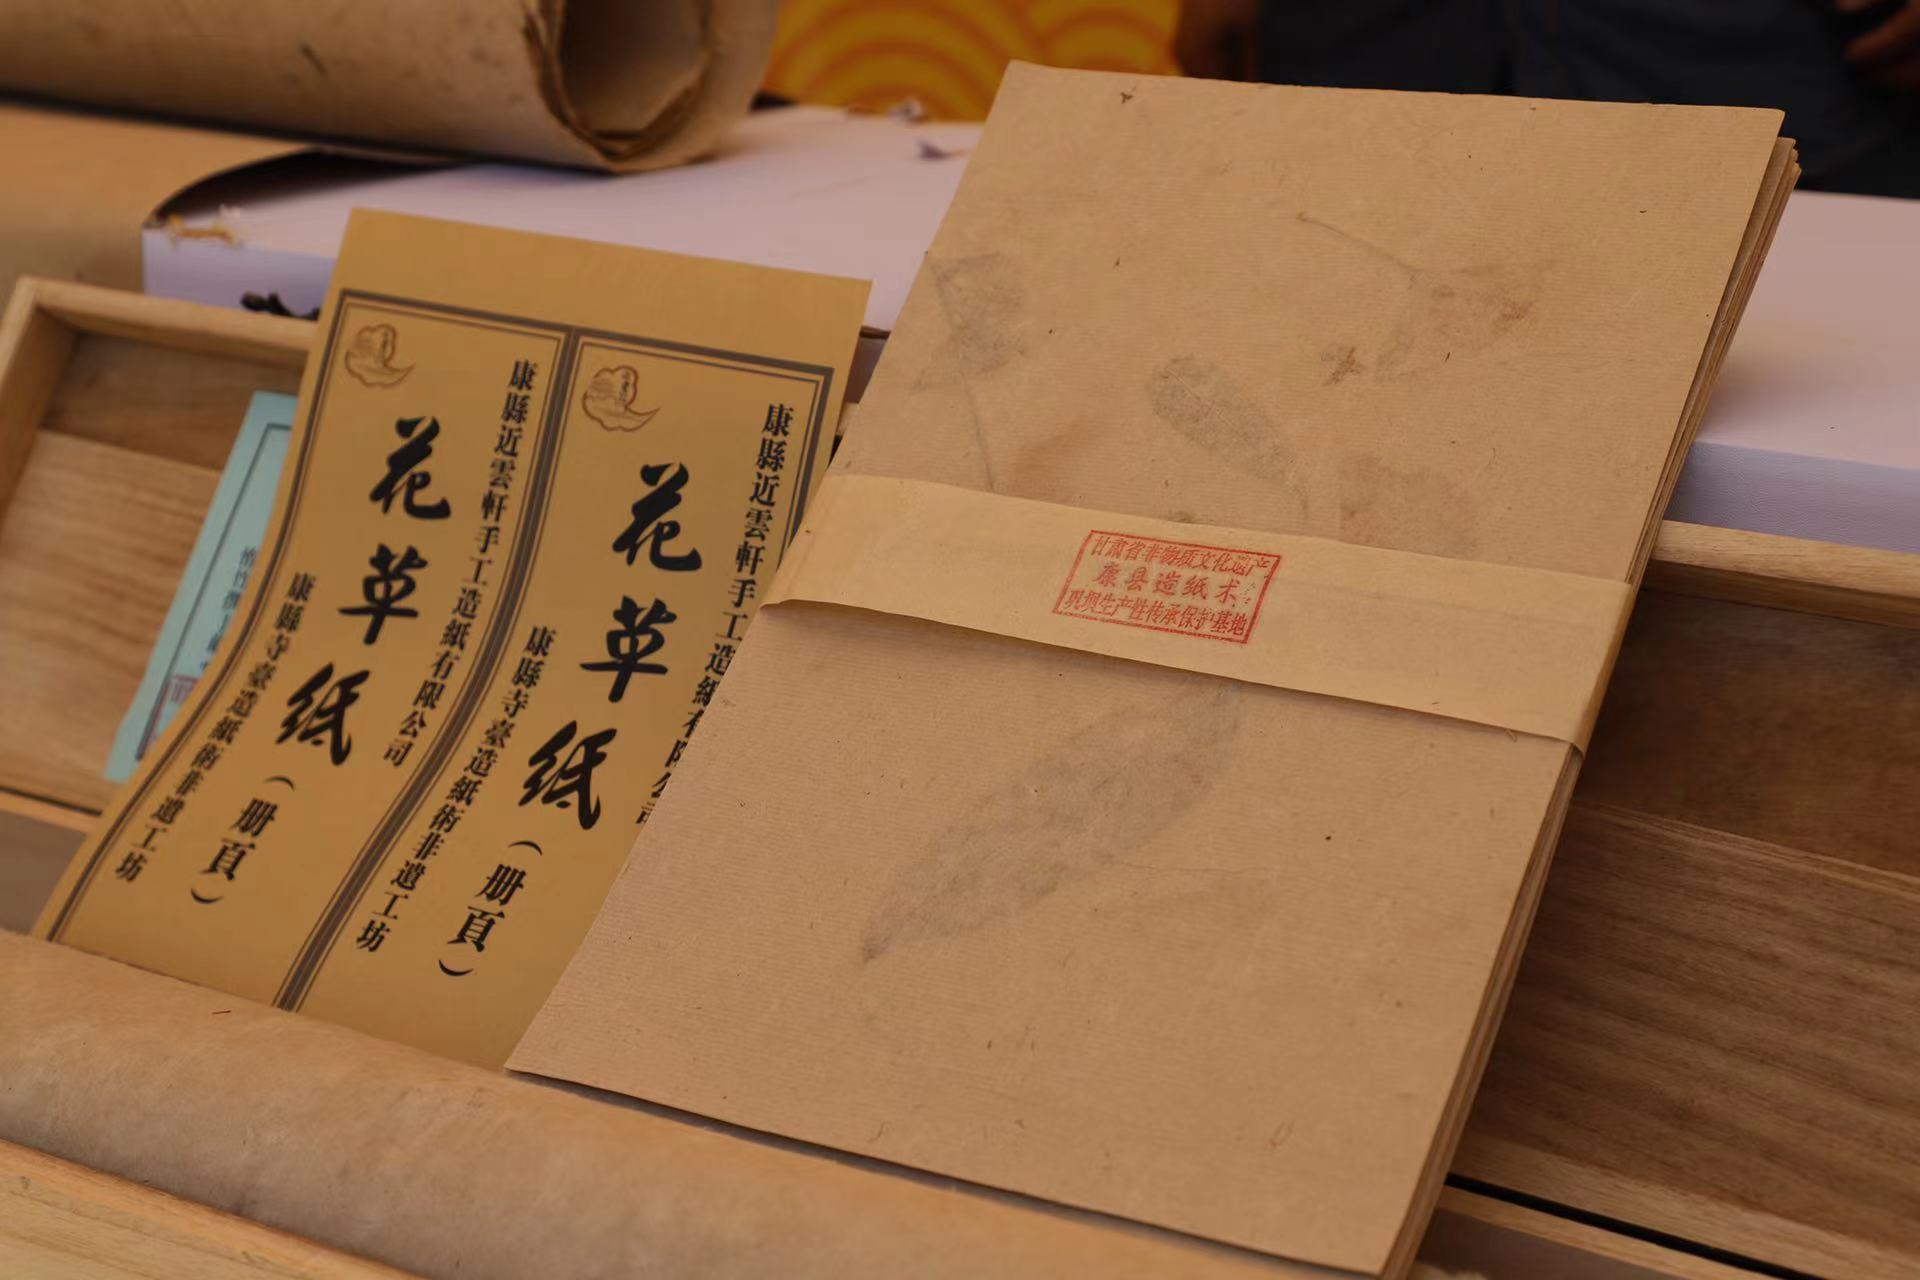 康縣近雲軒手工造紙有限公司
花草紙（册頁）
康縣寺臺造紙術非遺工坊
康縣近雲軒手工造紙有限公司
花草紙（册頁）
康縣寺臺造紙術非遺工坊
甘肃省非物质文化遗产
康县造纸术
巩坝生产性传承保护基地